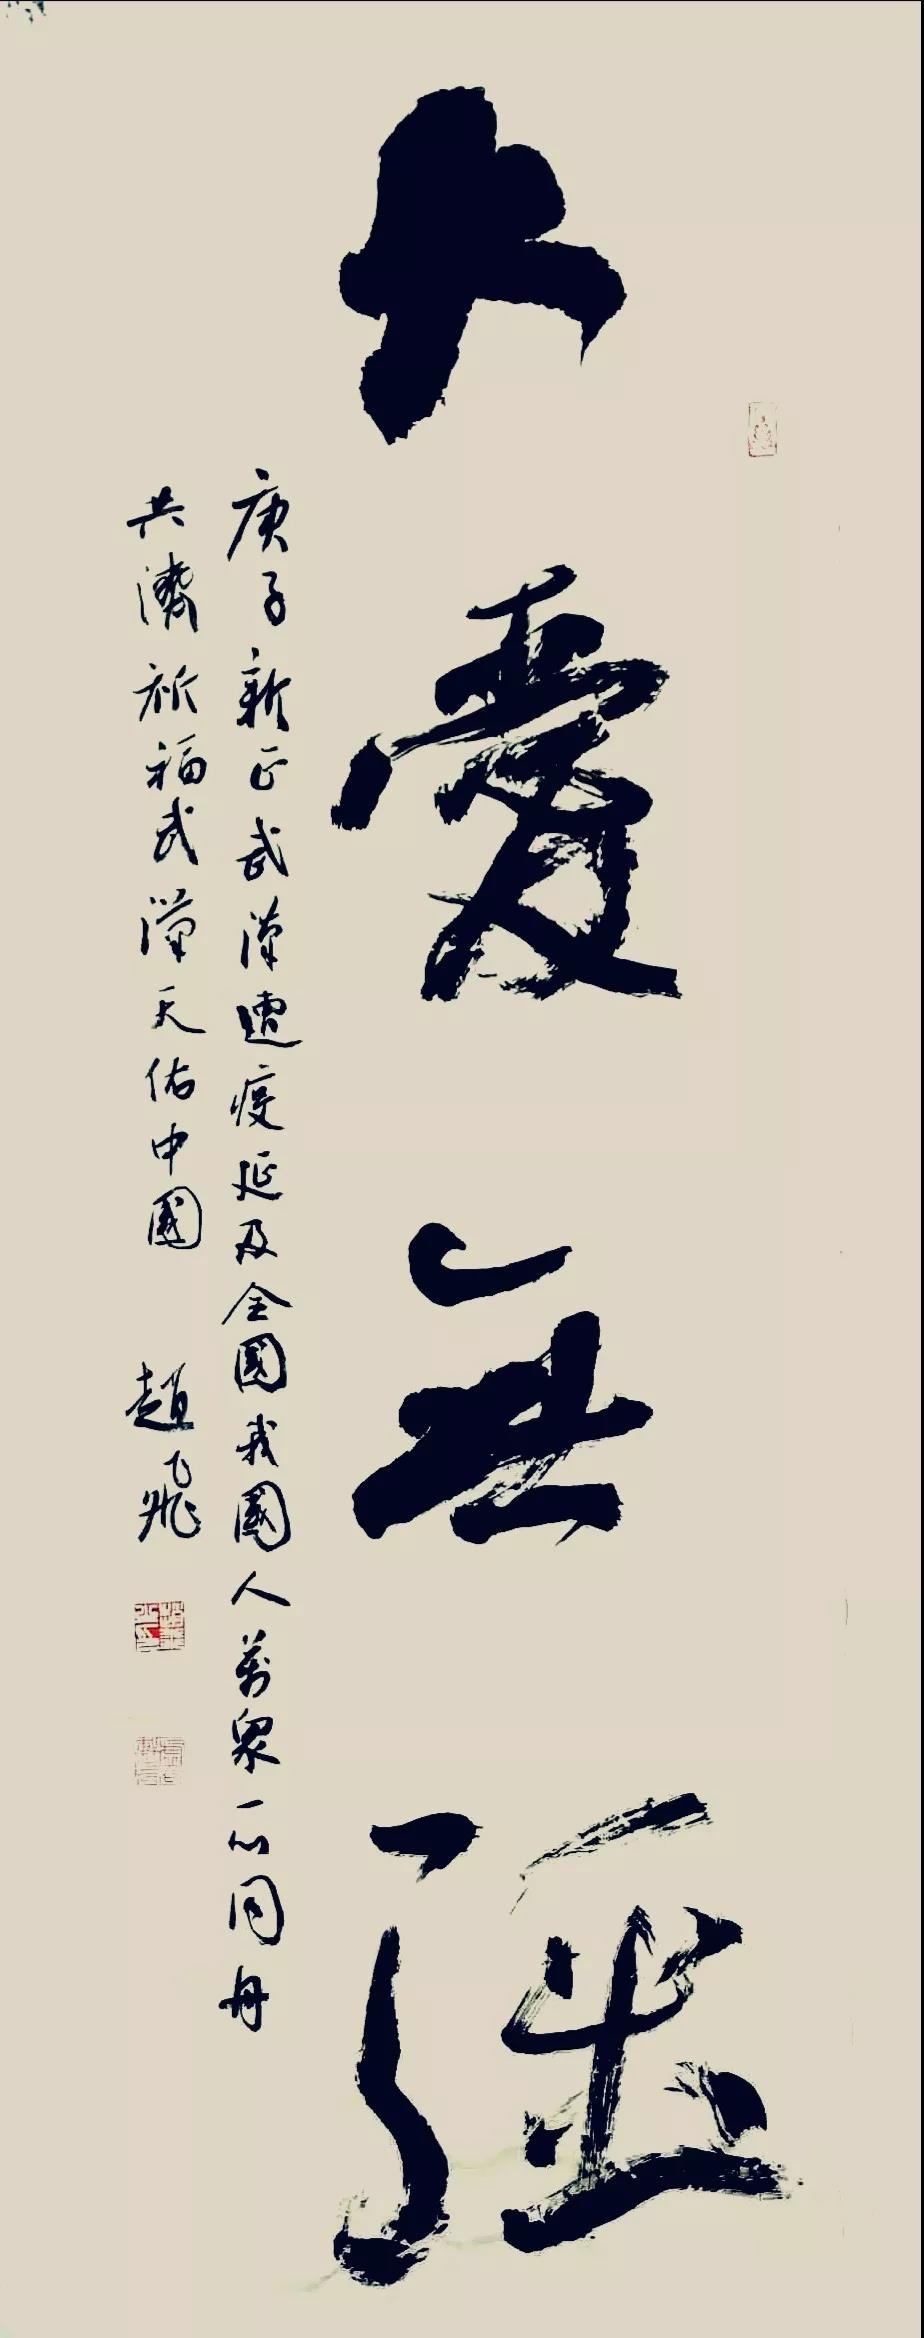 大愛無疆
庚子新正武漢遭疫延及全國我國人萬衆一心同舟
共濟祈福武漢天佑中國 趙飛